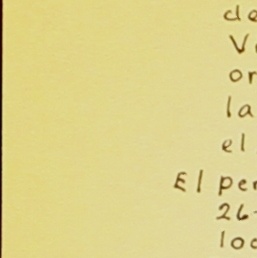 de
V
or
la
el
El per
26-
loc